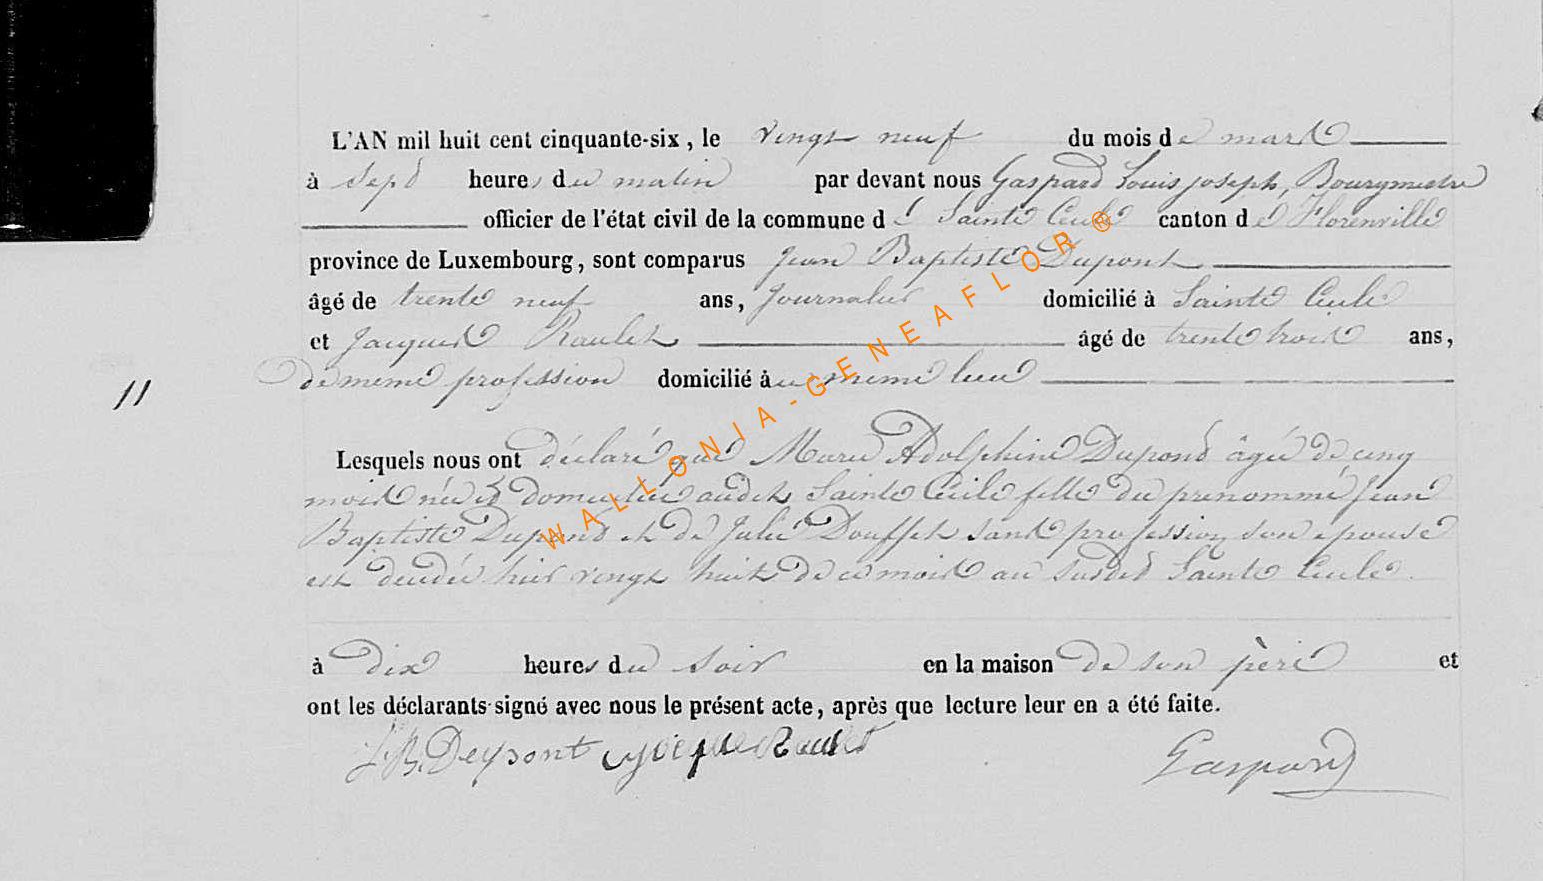 L'AN mil huit cent cinquante-six, le vingt neuf du mois de mars
à sept heures du matin par devant nous Gaspard Louis joseph, Bourgmestre
officier de l'état civil de la commune de Sainte Cecile canton de Florenville
province de Luxembourg, sont comparus Jean Baptiste Dupont
âgé de trente neuf ans, Journalier domicilié à Sainte Cecile
et Jacques Raulet âgé de trente trois ans,
de meme profession domicilié au meme lieu
11
Lesquels nous ont déclaré que Marie Adolphine Dupond âgée de cinq
mois née et domiciliée audit Sainte Cecile fille du prenommé Jean
Baptiste Dupond et de Julie Douffet sans profession son epouse
est décédée hier vingt huit de ce mois au susdit Sainte Cecile.
à dix heures du soir en la maison de son père et
ont les déclarants signé avec nous le présent acte, après que lecture leur en a été faite.
J.B. Depont Jacques Raulet Gaspard
WALLONIA-GENEAFLOR®